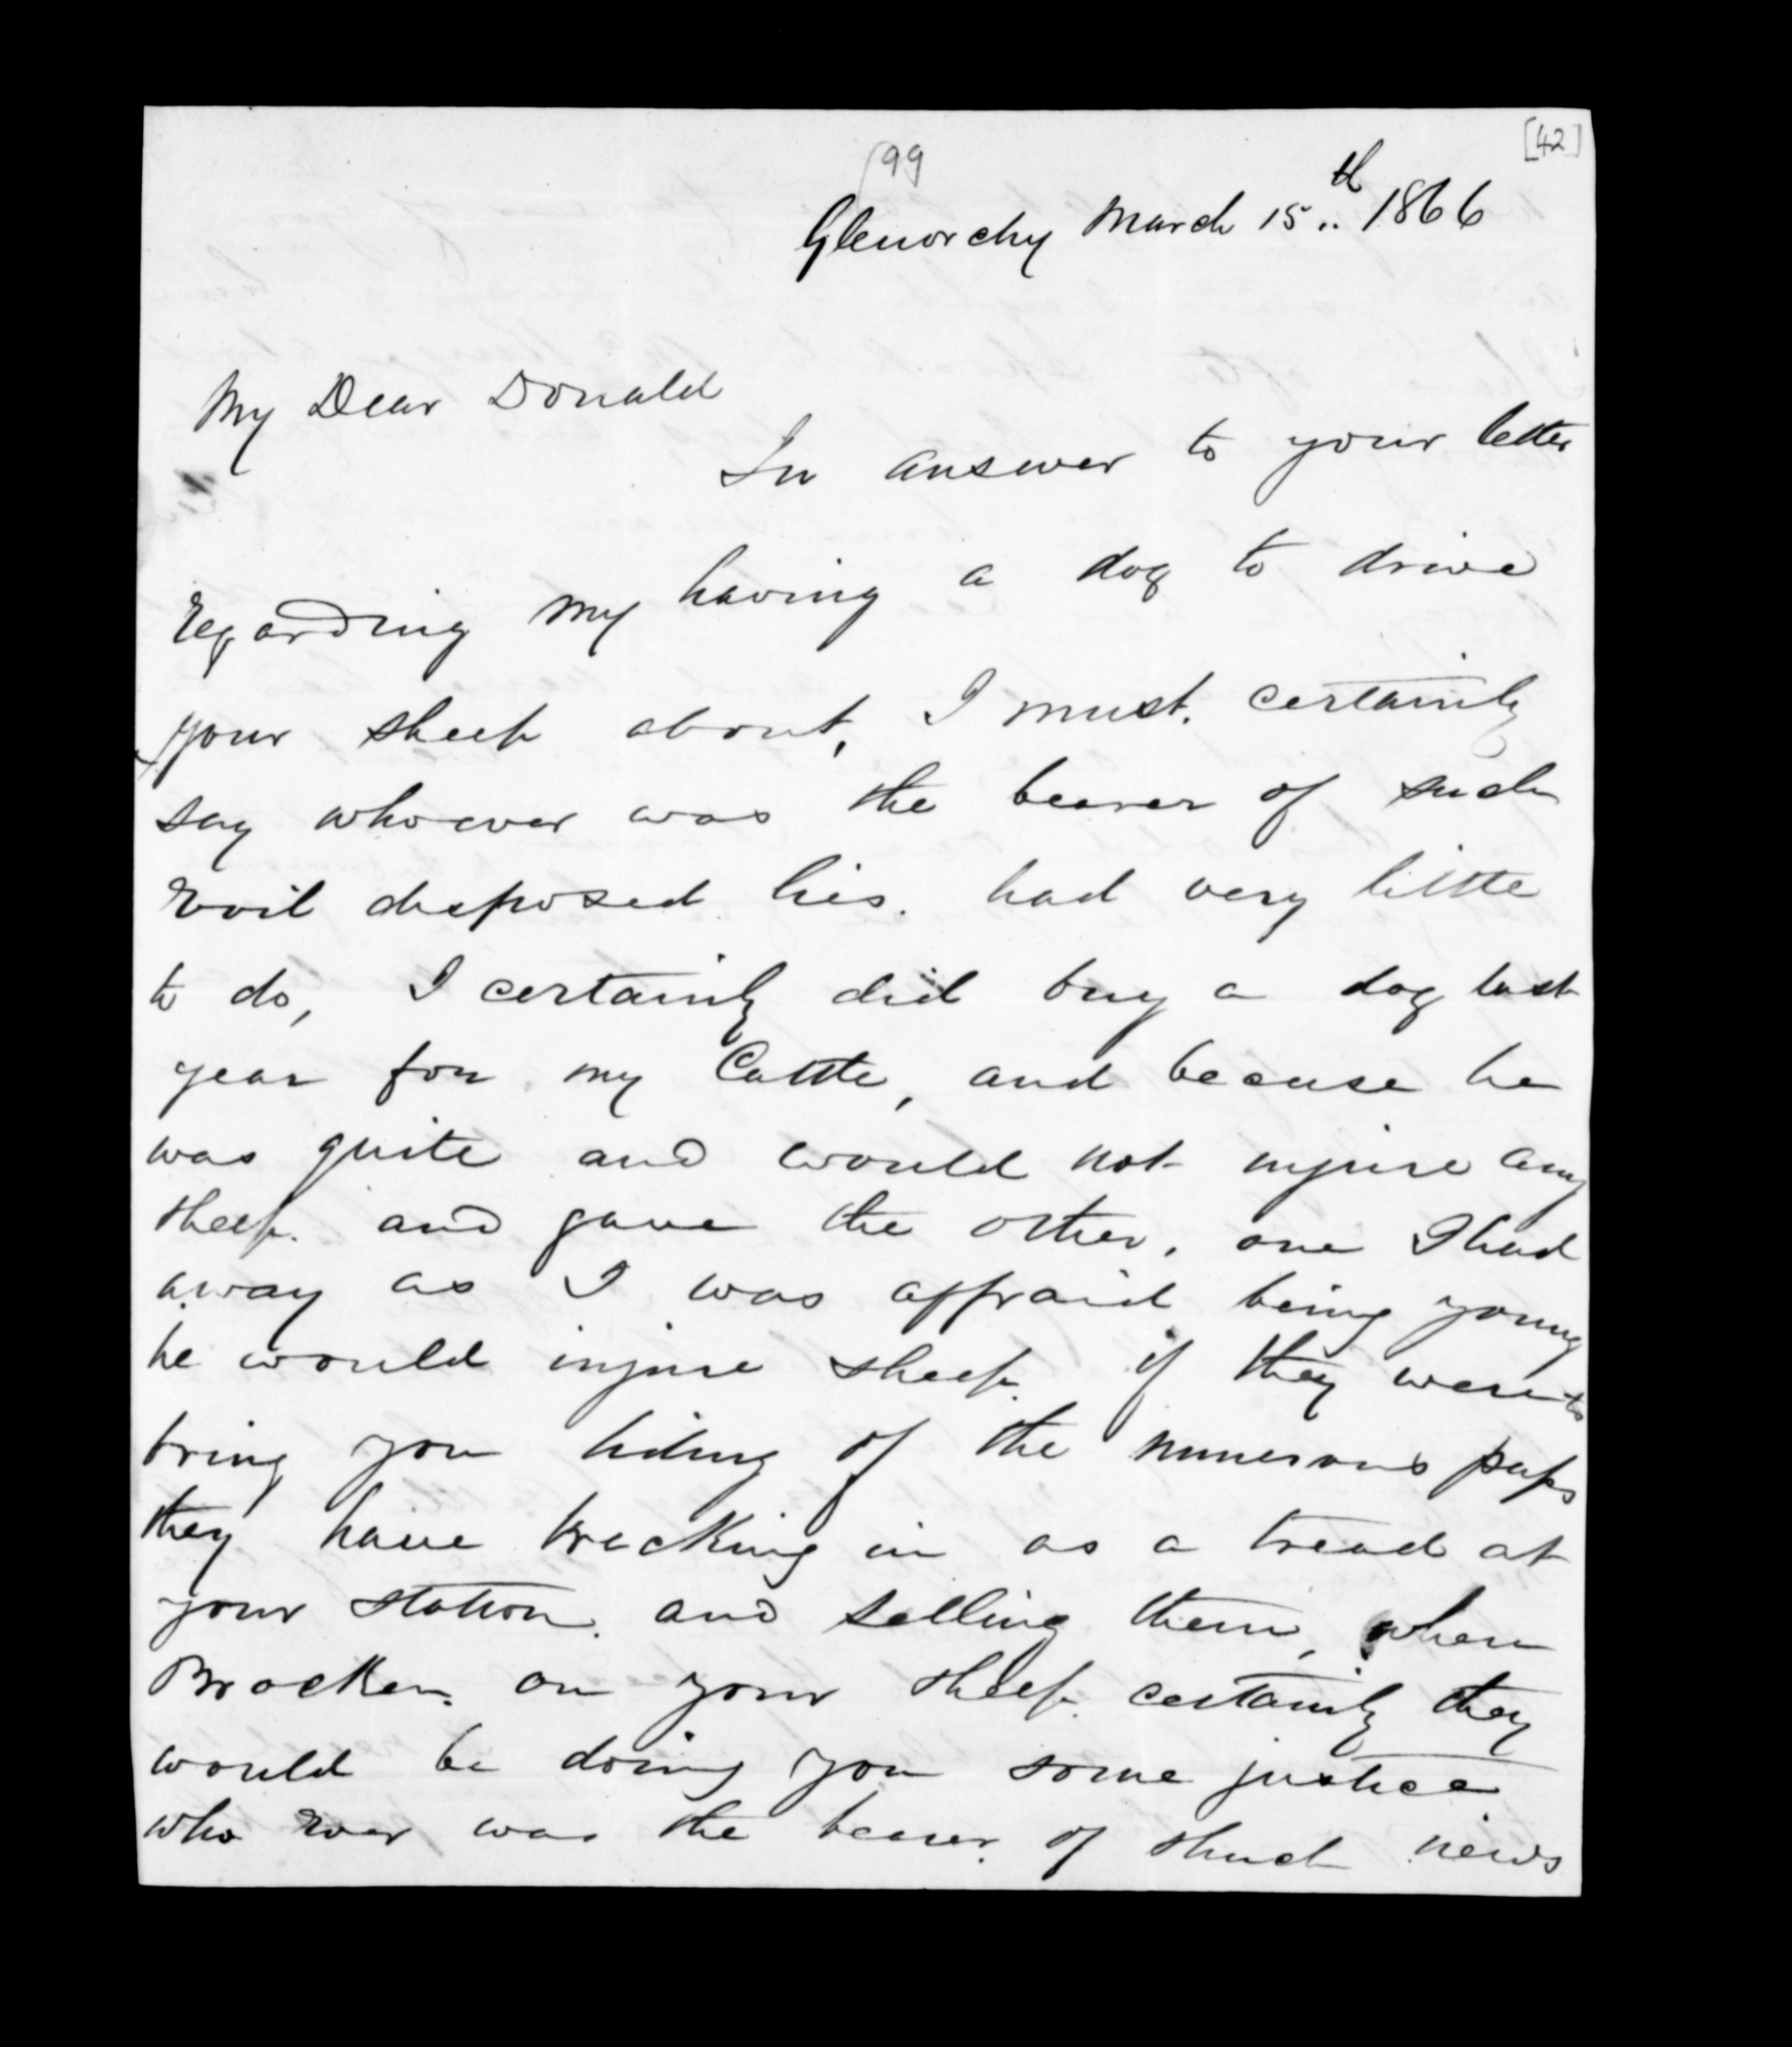 [42]
99
Glenorchy March 15th 1866
My Dear Donald
In answer to your letter
regarding my having a dog to drive
your sheep about, I must. certainly
say whoever was the bearer of such
Evil desposed lies. had very little
to do, I certainly did buy a dog last
year for my Cattle, and because he
was quite and would not injure any
sheep. and gave the other. one I had
away as I was affraid being young
he would injure sheep. if they were to
bring you tiding of the numerous pups
they have breaking in as a tread at
your station. and selling them, when
Brocken. on your sheep. certainly they
would be doing you some justice
who Ever was the bearer. of shuch news